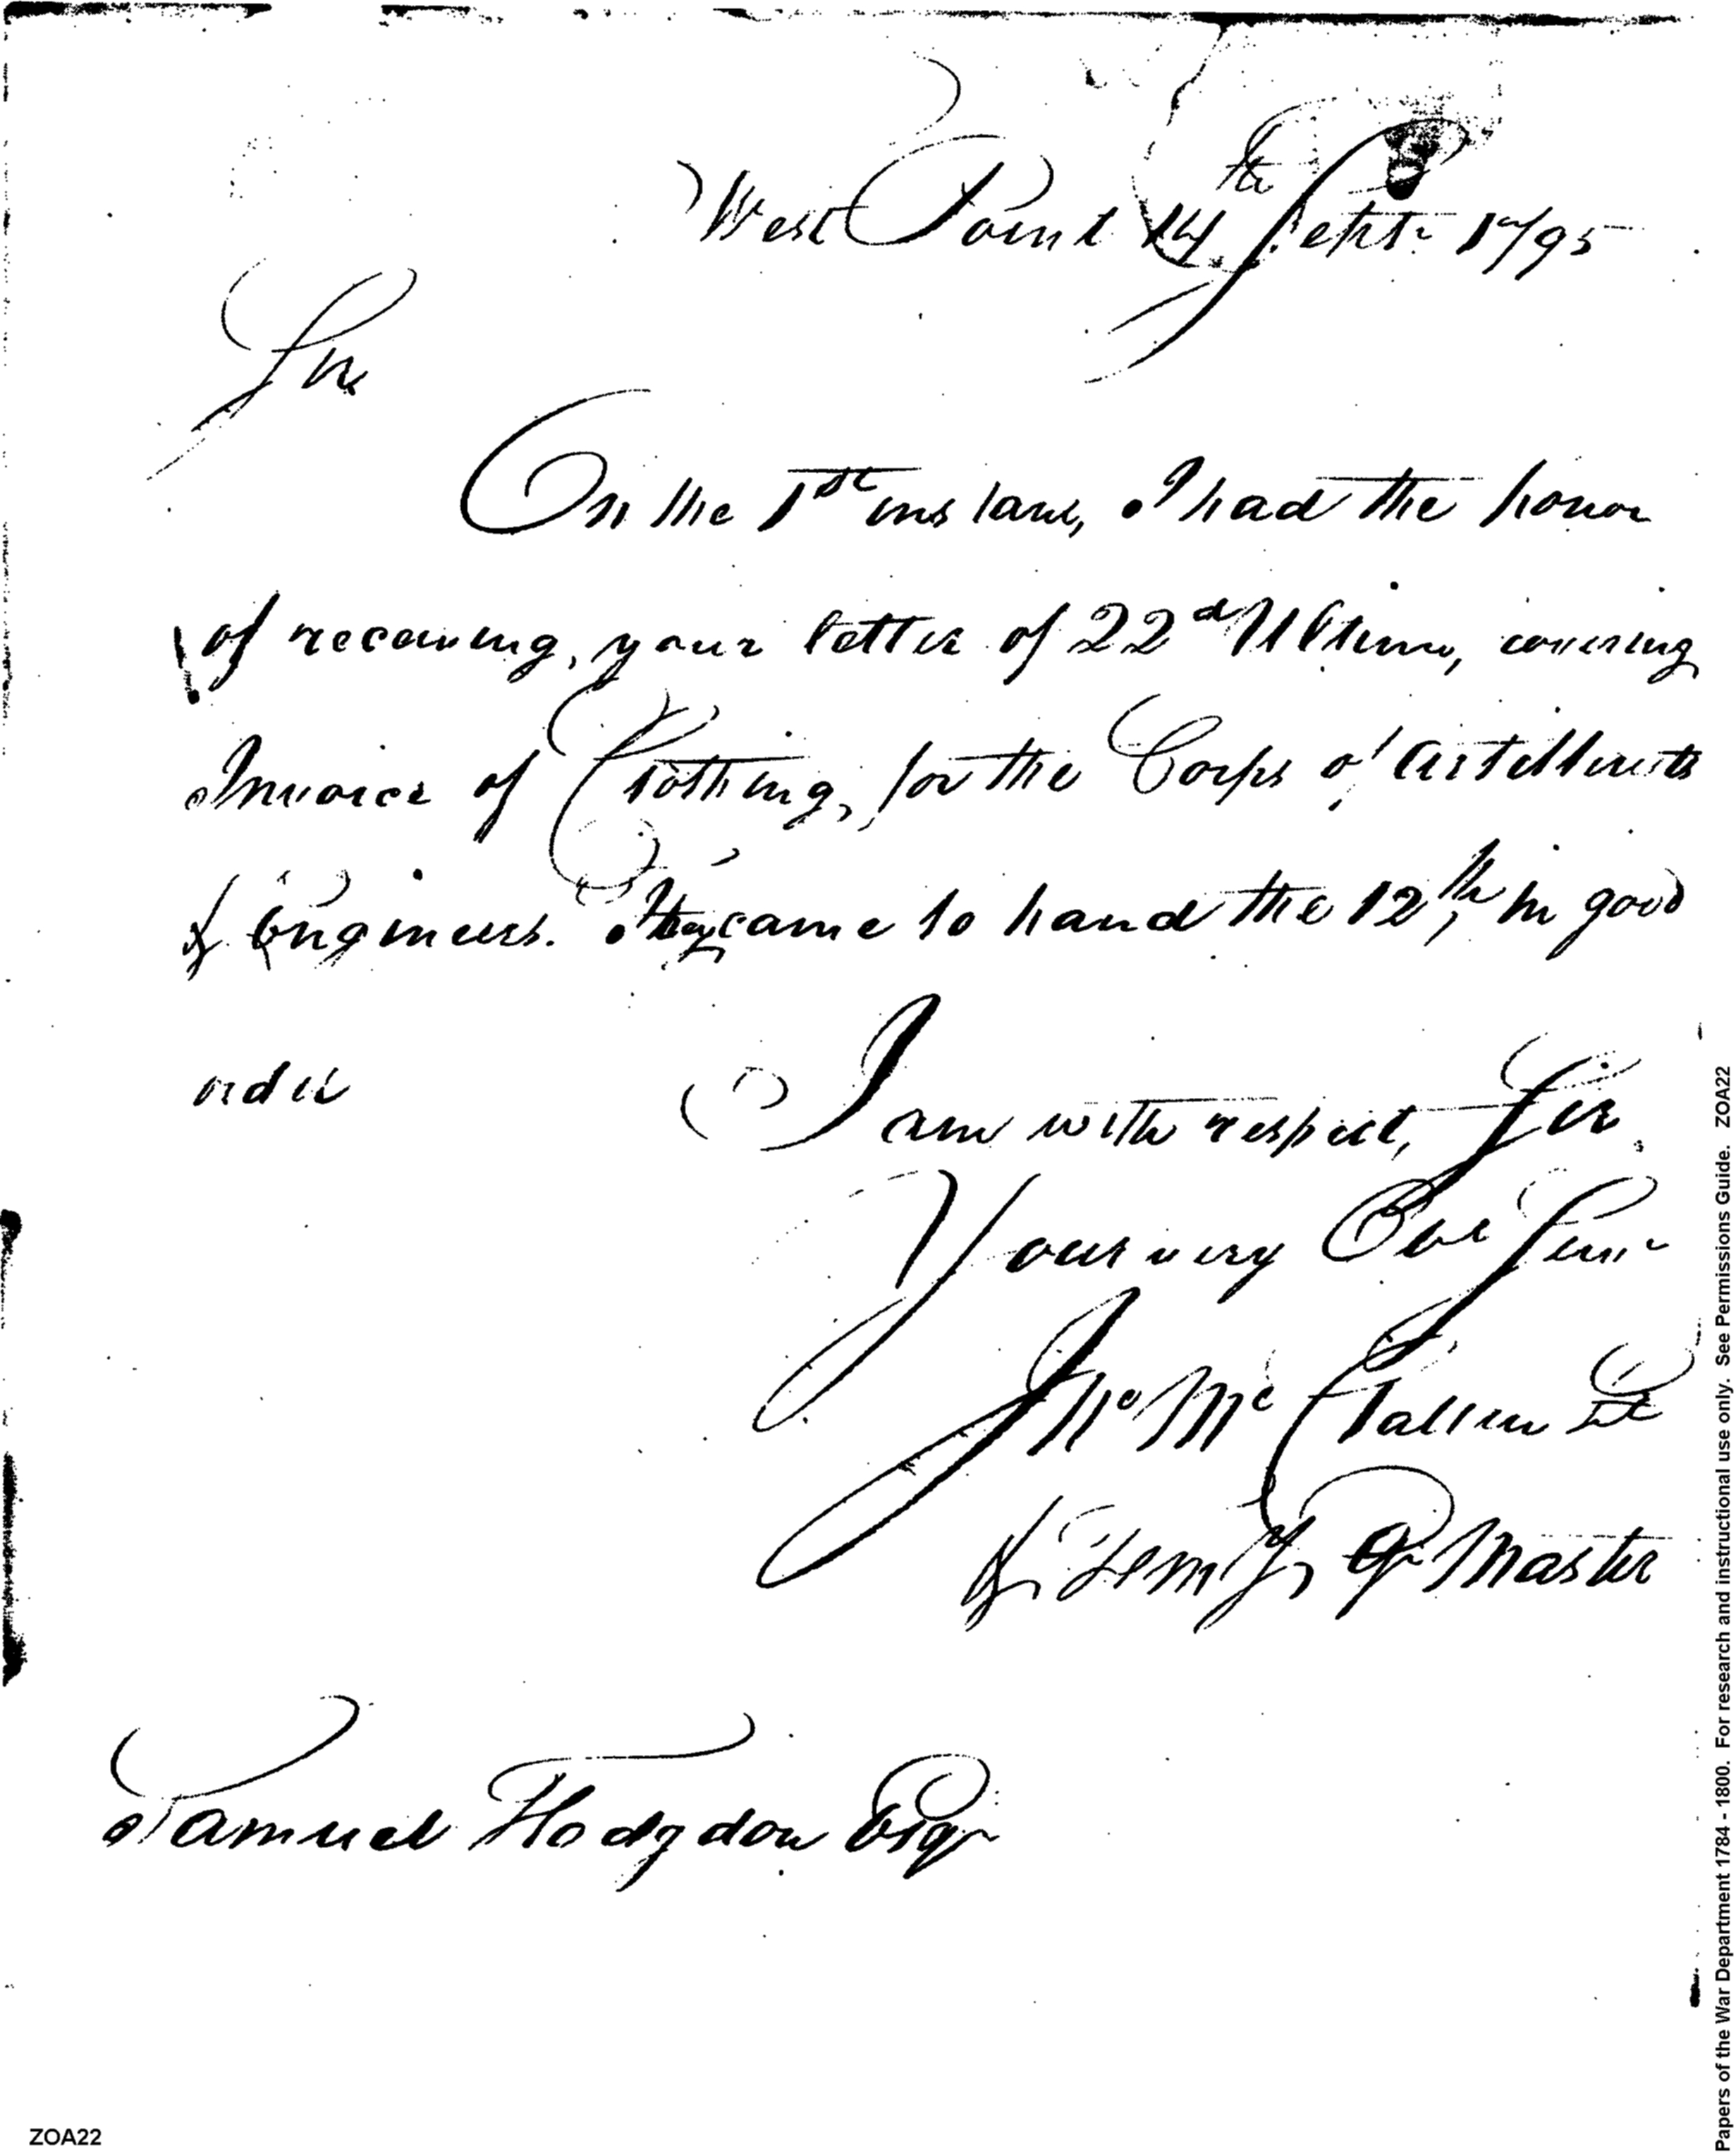 West Point 14th Sept. 1795
Sir
On the 1st instant, I had the honor
of receiving, your letter of 22d Ultimo, covering
Invoice of Clothing, for the Corps of Artillerists
& Engineers. They came to hand the 12th, in good
order
I am with respect, Sir,
Your very Obt Servt
Jno McClallen Lt
& Temp'y Qr Master
Samuel Hodgdon Esqr
ZOA22
Papers of the War Department 1784 - 1800. For research and instructional use only. See Permissions Guide. ZOA22